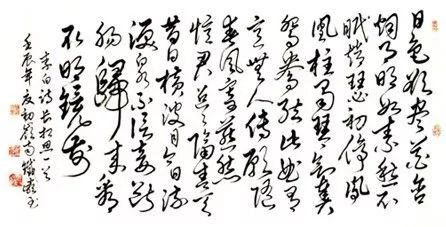 日色欲盡花含
烟月明如素愁不
眠趙瑟初停鳳
凰柱蜀琴欲奏
鴛鴦弦此曲有
意無人傳願隨
春風寄燕然
憶君迢迢隔青天
昔日橫波目今日流
淚泉不信妾斷
腸歸來看
取明鏡前
李白詩長相思一首
壬辰年夏初嶺南書